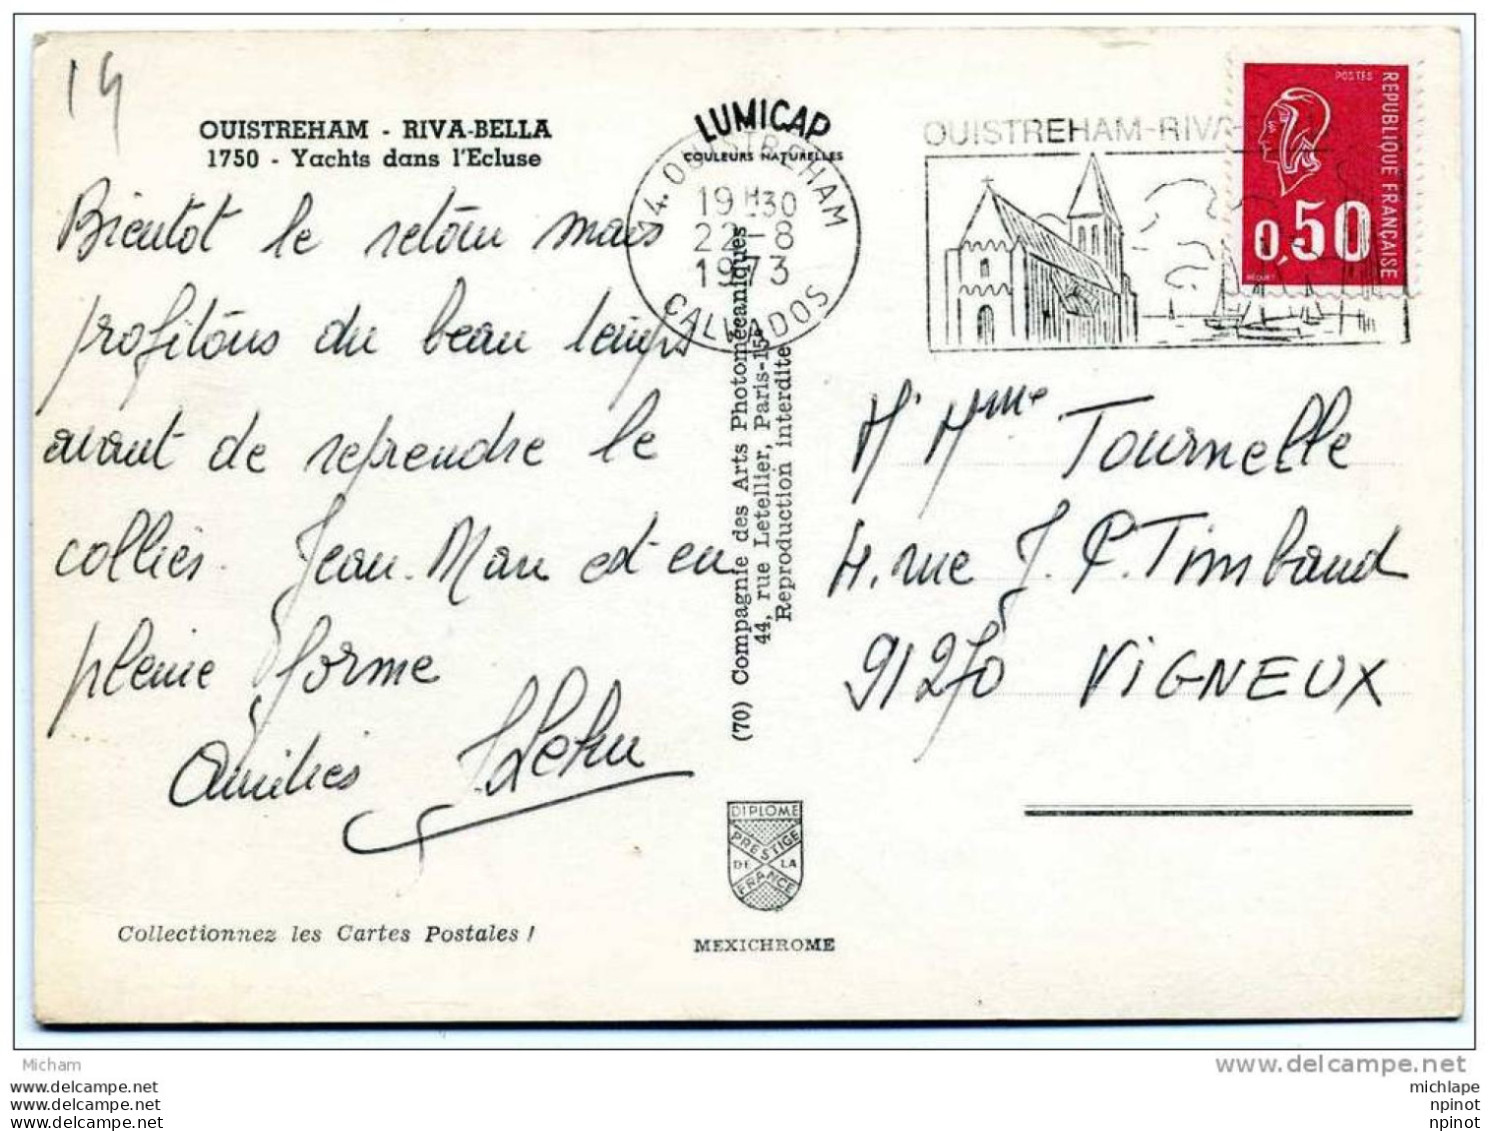 14
OUISTREHAM - RIVA-BELLA
1750 - Yachts dans l'Ecluse
Bientot le retour mais
profitons du beau temps
avant de reprendre le
collier. Jean-Marc est en
pleine forme
Amitiés
Collectionnez les Cartes Postales !
LUMICAP
COULEURS NATURELLES
14 OUISTREHAM
19H30
22-8
1973
CALVADOS
(70) Compagnie des Arts Photomécaniques
44, rue Letellier, Paris-15e
Reproduction interdite
DIPLOME
PRESTIGE
DE LA
FRANCE
MEXICHROME
OUISTREHAM-RIVA-
POSTES
REPUBLIQUE FRANÇAISE
0,50
BEQUET
Mr Mme Tournelle
4. rue J. P. Timbaud
91270 VIGNEUX
Micham
www.delcampe.net
www.delcampe.net
www.delcampe.net
www.delcampe.net
michlape
npinot
npinot